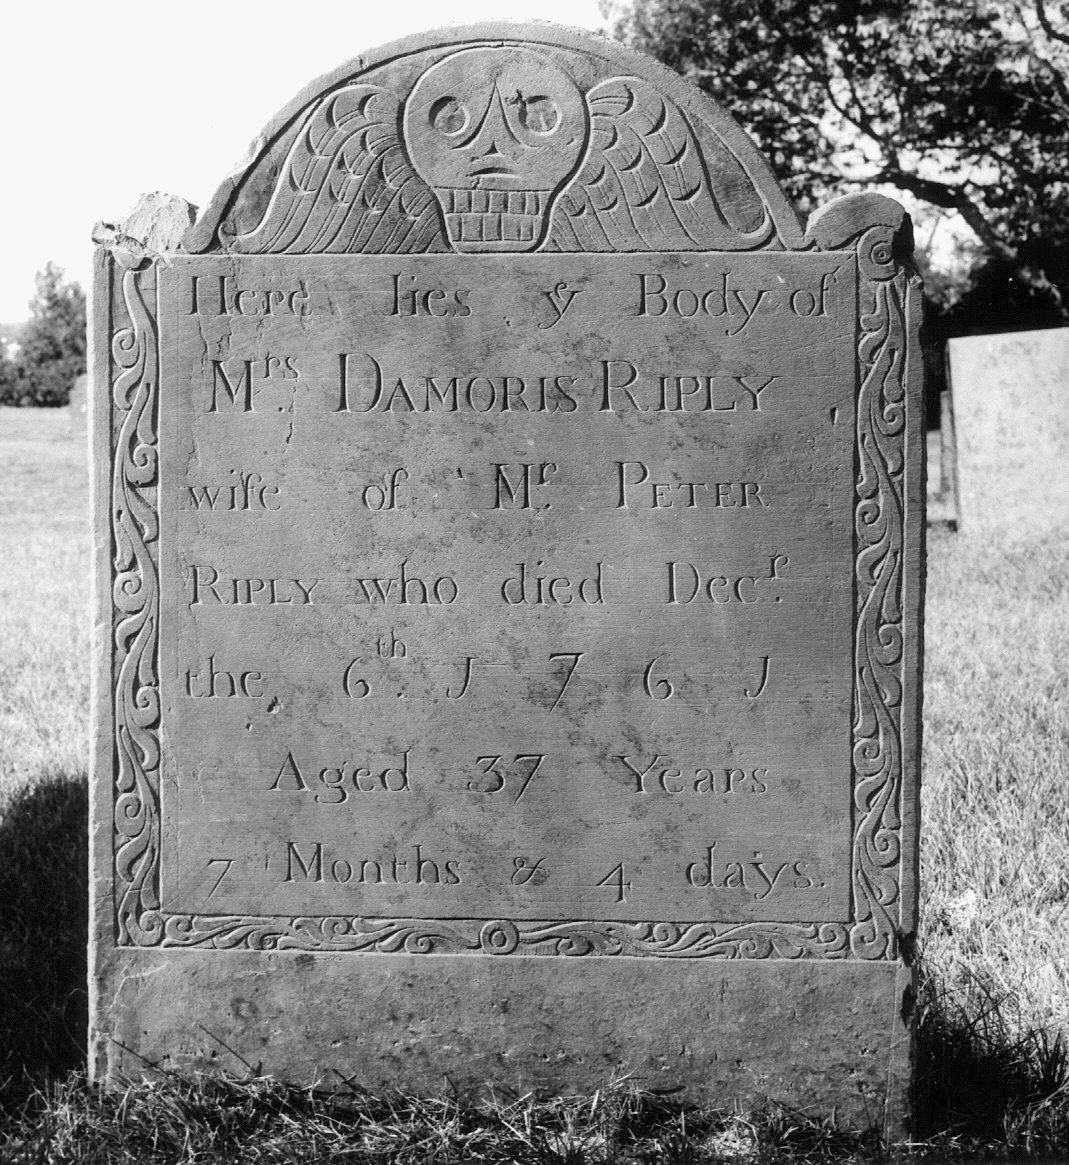 Here lies y Body of
Mrs DAMORIS RIPLY
wife of Mr. PETER
RIPLY who died Decr.
the 6th. J 7 6 J
Aged 37 Years
7 Months & 4 days.